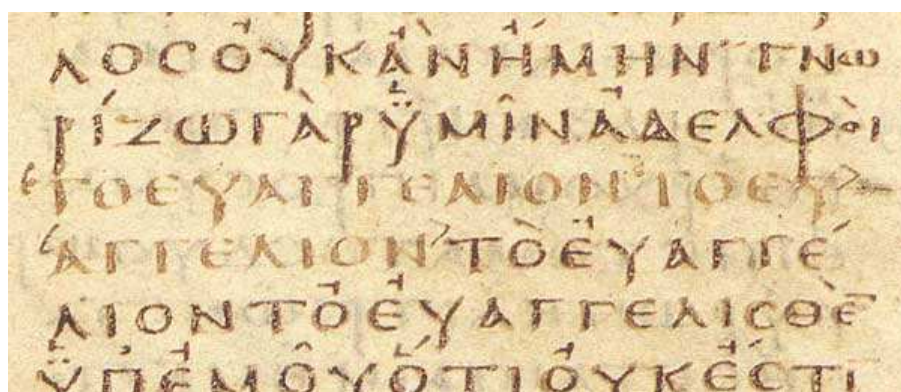 ΛΟϹΟὙΚἊΝἭΜΗΝ ΓΝΩ
ΡΊΖΩΓᾺΡΫΜΙ͂ΝἈΔΕΛΦΟῚ
‘ΤΟΕΥΑΓΓΕΛΙΟΝ ΤΟΕΥ›
‘ΑΓΓΕΛΙΟΝ’ΤῸἘΥΑΓΓΈ
ΛΙΟΝΤῸἘΥΑΓΓΕΛΙϹΘῈ̅
ΫΠἘΜΟΥ͂ὍΤΙΟὙΚἜϹΤΙ